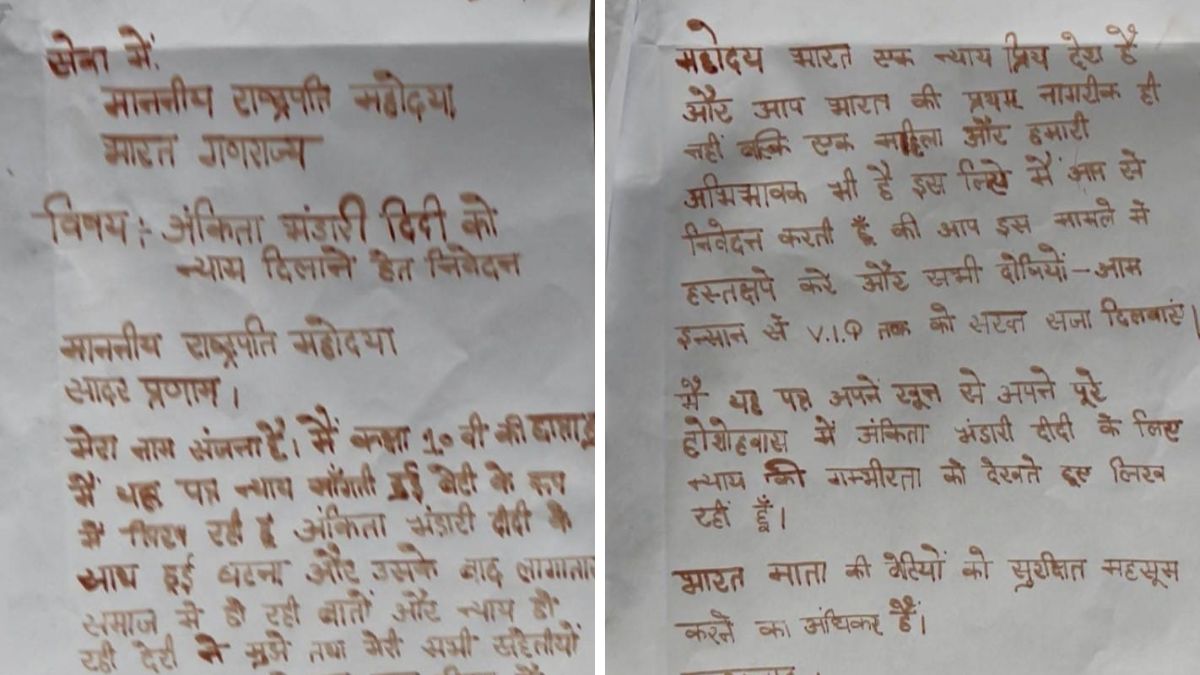 सेवा में:
माननीय राष्ट्रपति महोदया
भारत गणराज्य
विषय :- अंकिता भंडारी दिदी को
न्याय दिलाने हेत निवेदन
माननीय राष्ट्रपति महोदया
सादर प्रणाम।
मेरा नाम संजना है। मैं कक्षा 10 वी की छात्रा हूं
मैं यह पत्र न्याय माँगती हुई बेटी के रूप
में लिख रही हूं अंकिता भंडारी दीदी के
साथ हुई घटना और उसके बाद लागातार
समाज में हो रही बातों और न्याय हो
रही देरी ने मुझे तथा मेरी सभी सहेतीयों
महोदय भारत एक न्याय प्रिय देश है
और आप भारत की प्रथम नागरीक ही
नहीं बल्कि एक महिला और हमारी
अभिभावक भी है इस लिये मैं आप से
निवेदन करती हूँ की आप इस मामले में
हस्तक्षपे करे और सभी दोषियों - आम
इन्सान से V.I.P तक को सख्त सजा दिलवाएं।
मैं यह पत्र अपने खून से अपने पूरे
होशोहवास में अंकिता भंडारी दीदी के लिए
न्याय की गम्भीरता को देखते हुए लिख
रहीं हूँ।
भारत माता की बेटियों को सुरक्षित महसूस
करने का अधिकार हैं।